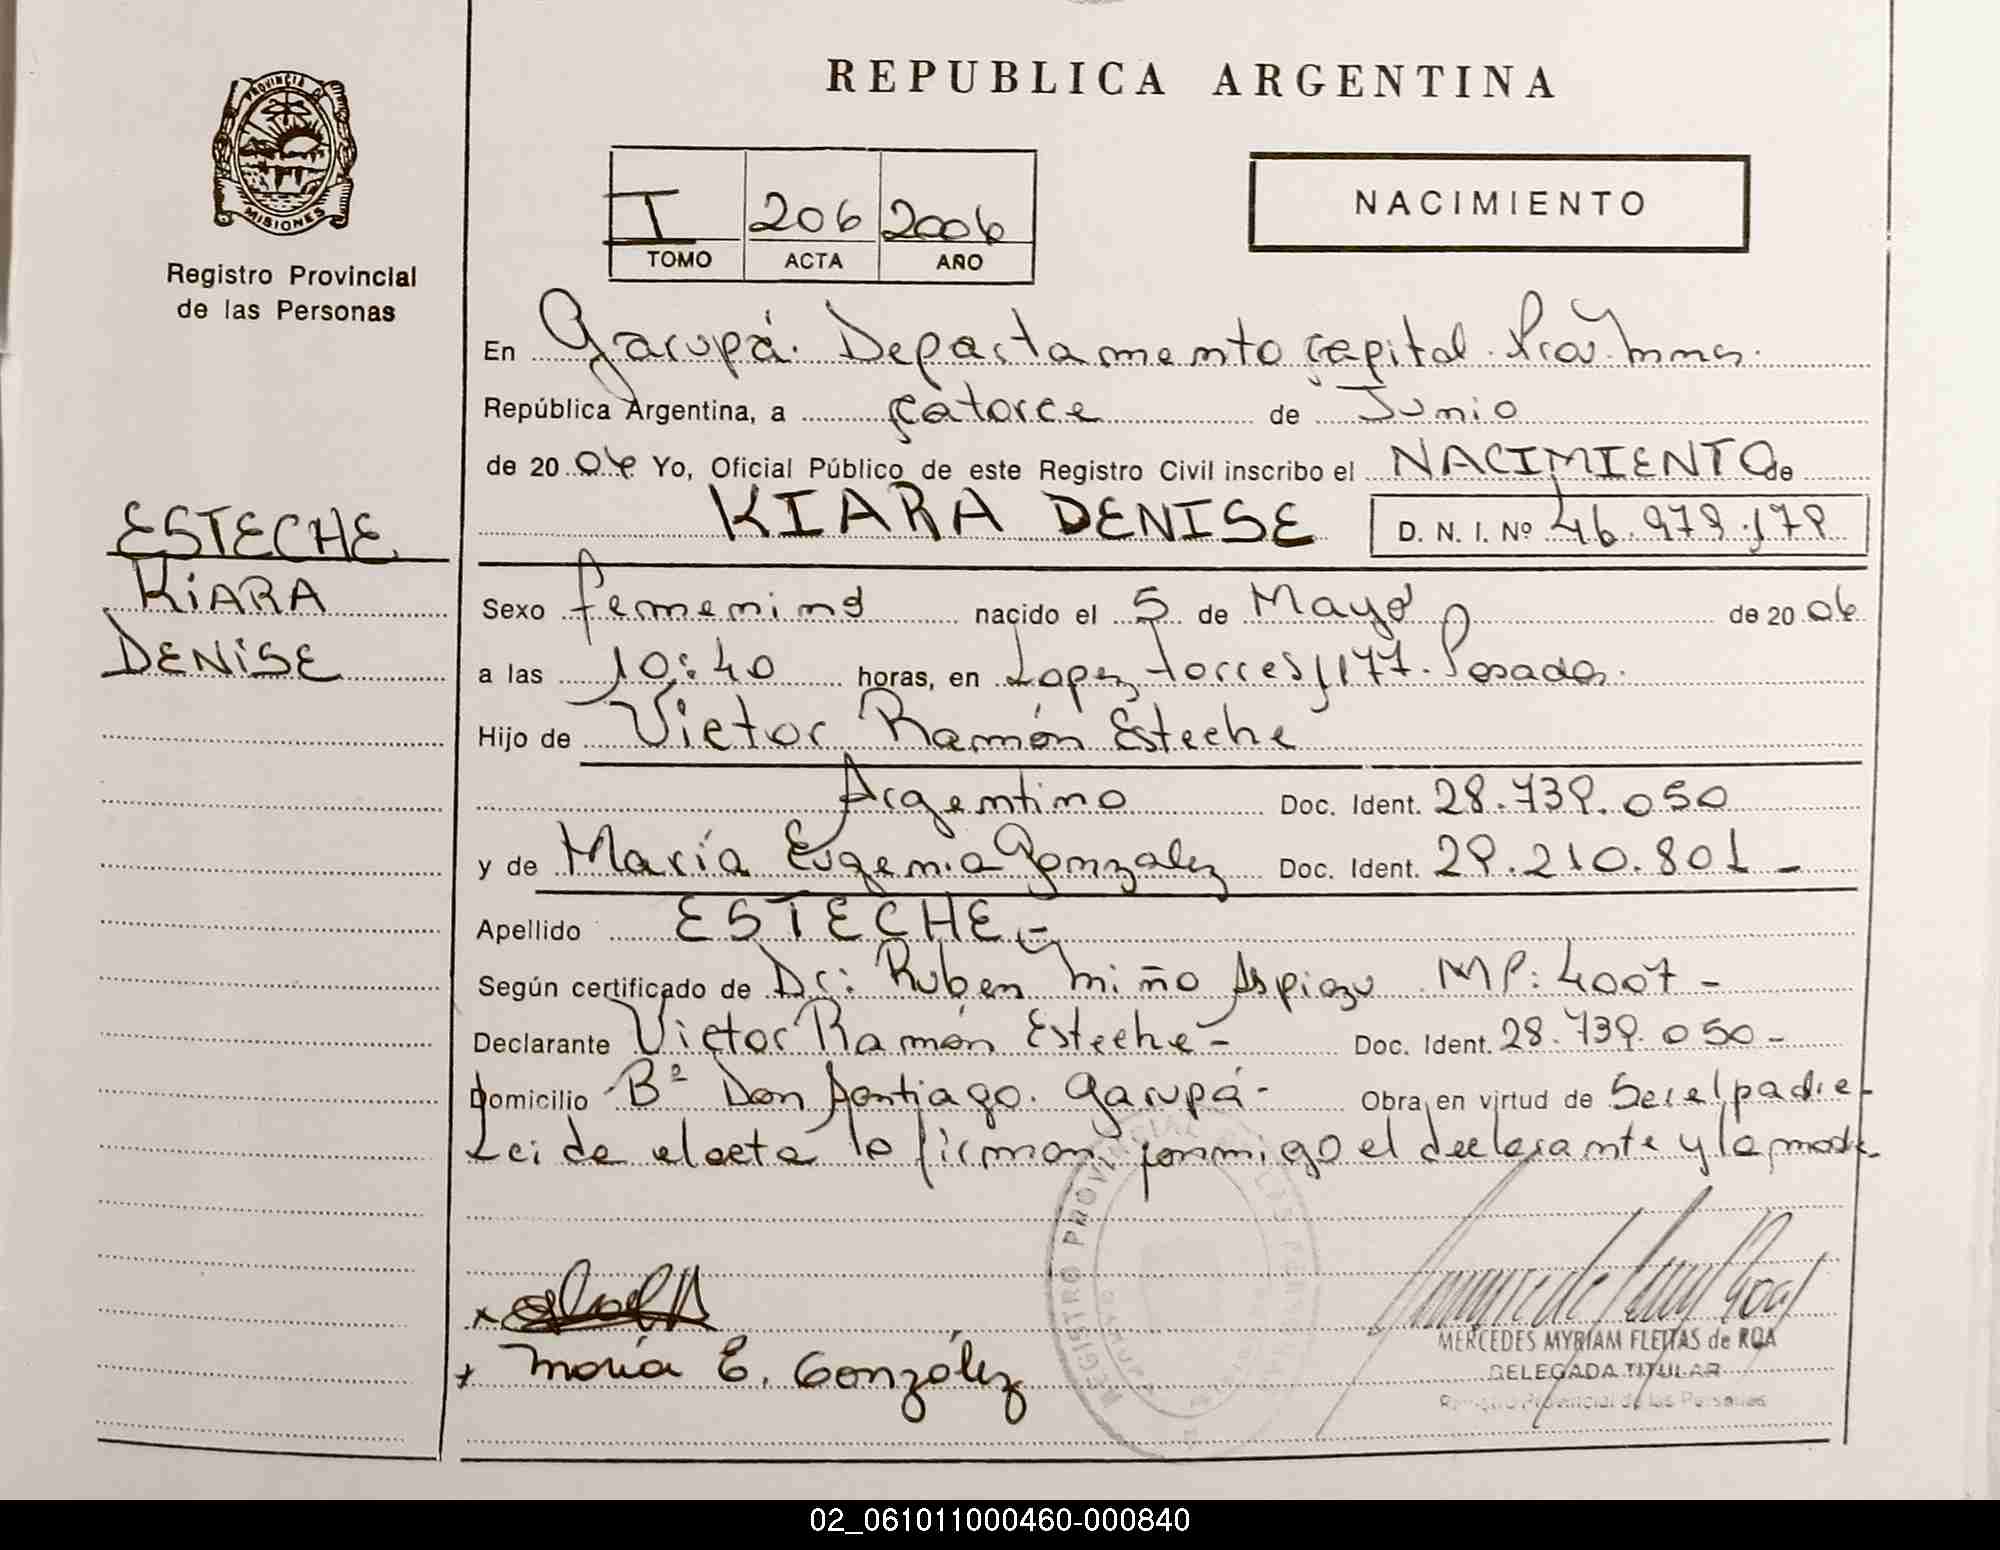 PROVINCIA D
MISIONES
Registro Provincial
de las Personas
ESTECHE
KiARA
DENiSE
REPUBLICA ARGENTINA
I 206 2006
TOMO ACTA AÑO
NACIMIENTO
En Garupá. Departamento Capital. Prov. Mnes.
República Argentina, a catorce de Junio
de 20 06 Yo, Oficial Público de este Registro Civil inscribo el NACIMIENTO de
KIARA DENISE D. N. I. Nº 46.979.179
Sexo femenino nacido el 5 de Mayo de 20 06
a las 10:40 horas, en Lopez Torres 1177. Posadas.
Hijo de Victor Ramón Esteche
Argentino Doc. Ident. 28.739.050
y de María Eugenia Gonzalez Doc. Ident. 29.210.801 -
Apellido ESTECHE -
Según certificado de Dr: Ruben Miño Aspiazu MP: 4007 -
Declarante Victor Ramón Esteche - Doc. Ident. 28.739.050 -
Domicilio Bº Don Santiago. Garupá - Obra en virtud de Ser el padre -
Leida el acta la firman conmigo el declarante y la madre
REGISTRO PROVINCIAL DE LAS PERSONAS
x María E. González
MERCEDES MYRIAM FLEITAS de ROA
DELEGADA TITULAR
Registro Provincial de las Personas
02_061011000460-000840